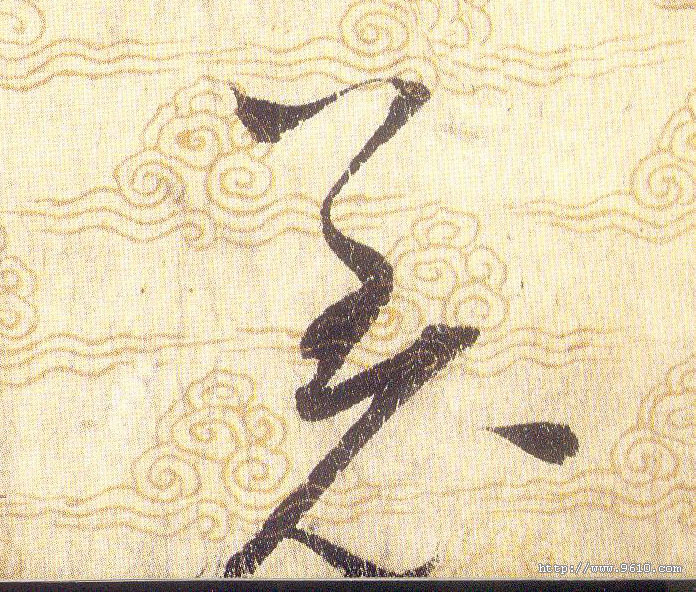 美
http://www.9610.com